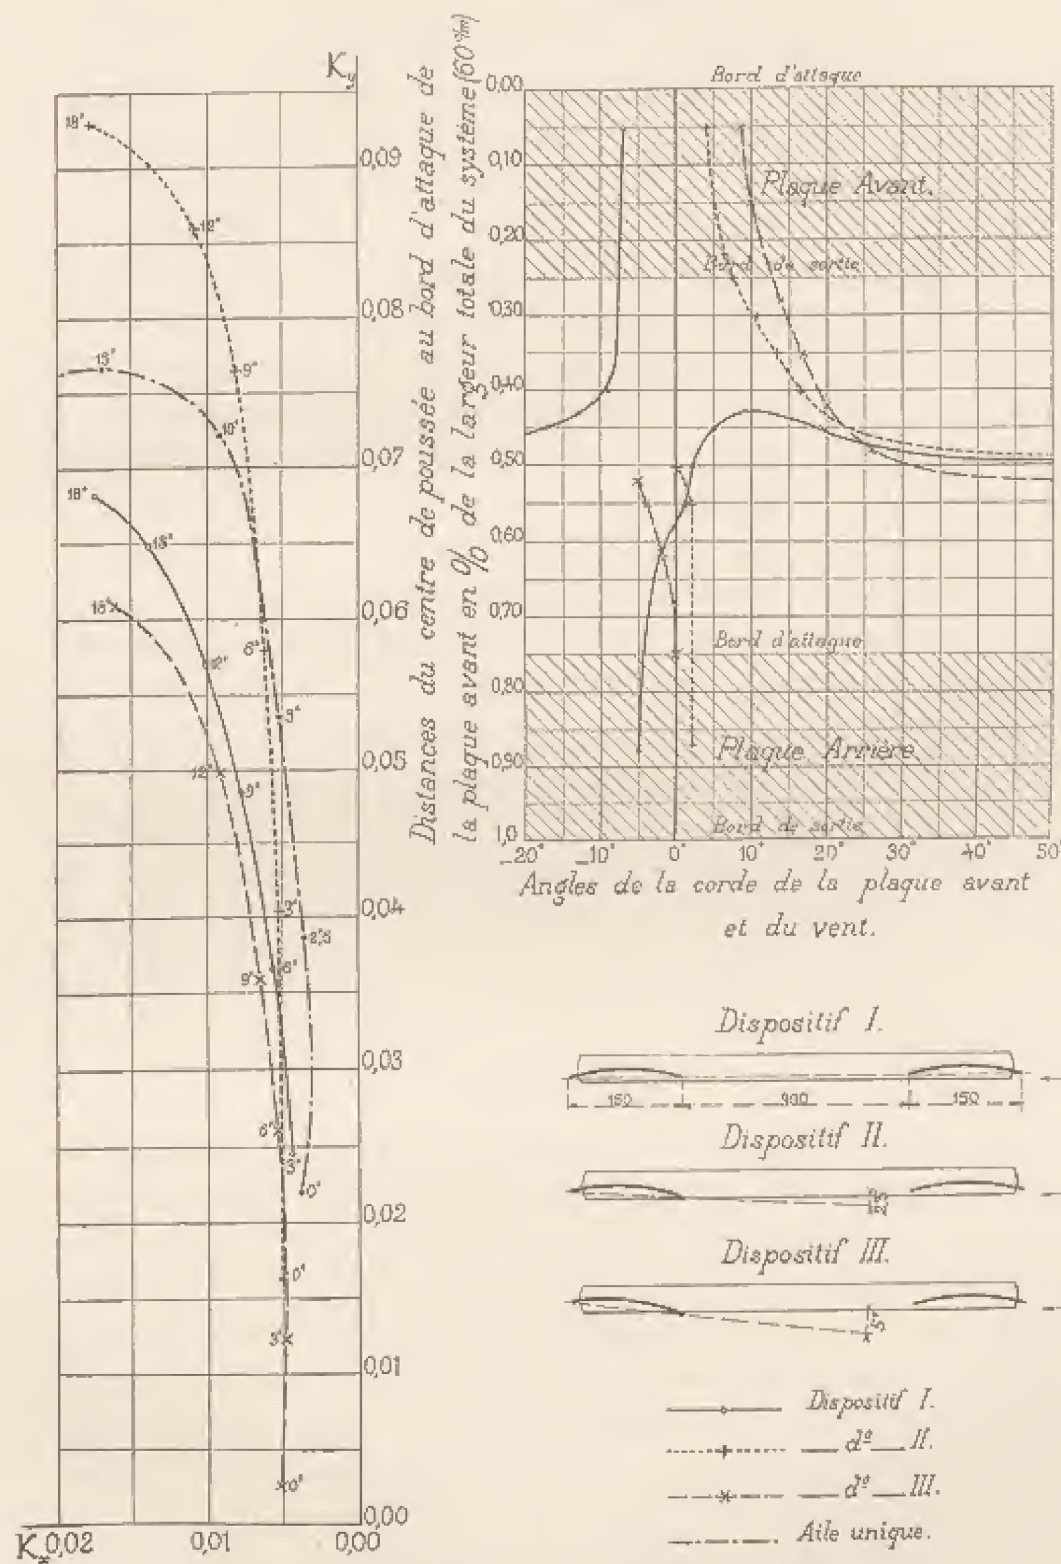 Ky
0,09
0,08
0,07
0,06
0,05
0,04
0,03
0,02
0,01
0,00
Kx 0,02
0,01
0,00
18°
12°
9°
15°
10°
18°
15°
12°
9°
6°
6°
3°
3°
15°
12°
9°
6°
0°
0°
3°
0°
Distances du centre de poussée au bord d'attaque de
la plaque avant en % de la largeur totale du système (60 c/m)
0,00
0,10
0,20
0,30
0,40
0,50
0,60
0,70
0,80
0,90
1,0
Bord d'attaque
Plaque Avant.
Bord de sortie
Bord d'attaque
Plaque Arrière.
Bord de sortie
_20°
_10°
0°
10°
20°
30°
40°
50°
Angles de la corde de la plaque avant
et du vent.
Dispositif I.
150
300
150
Dispositif II.
Dispositif III.
5°
Dispositif I.
d° II.
d° III.
Aile unique.